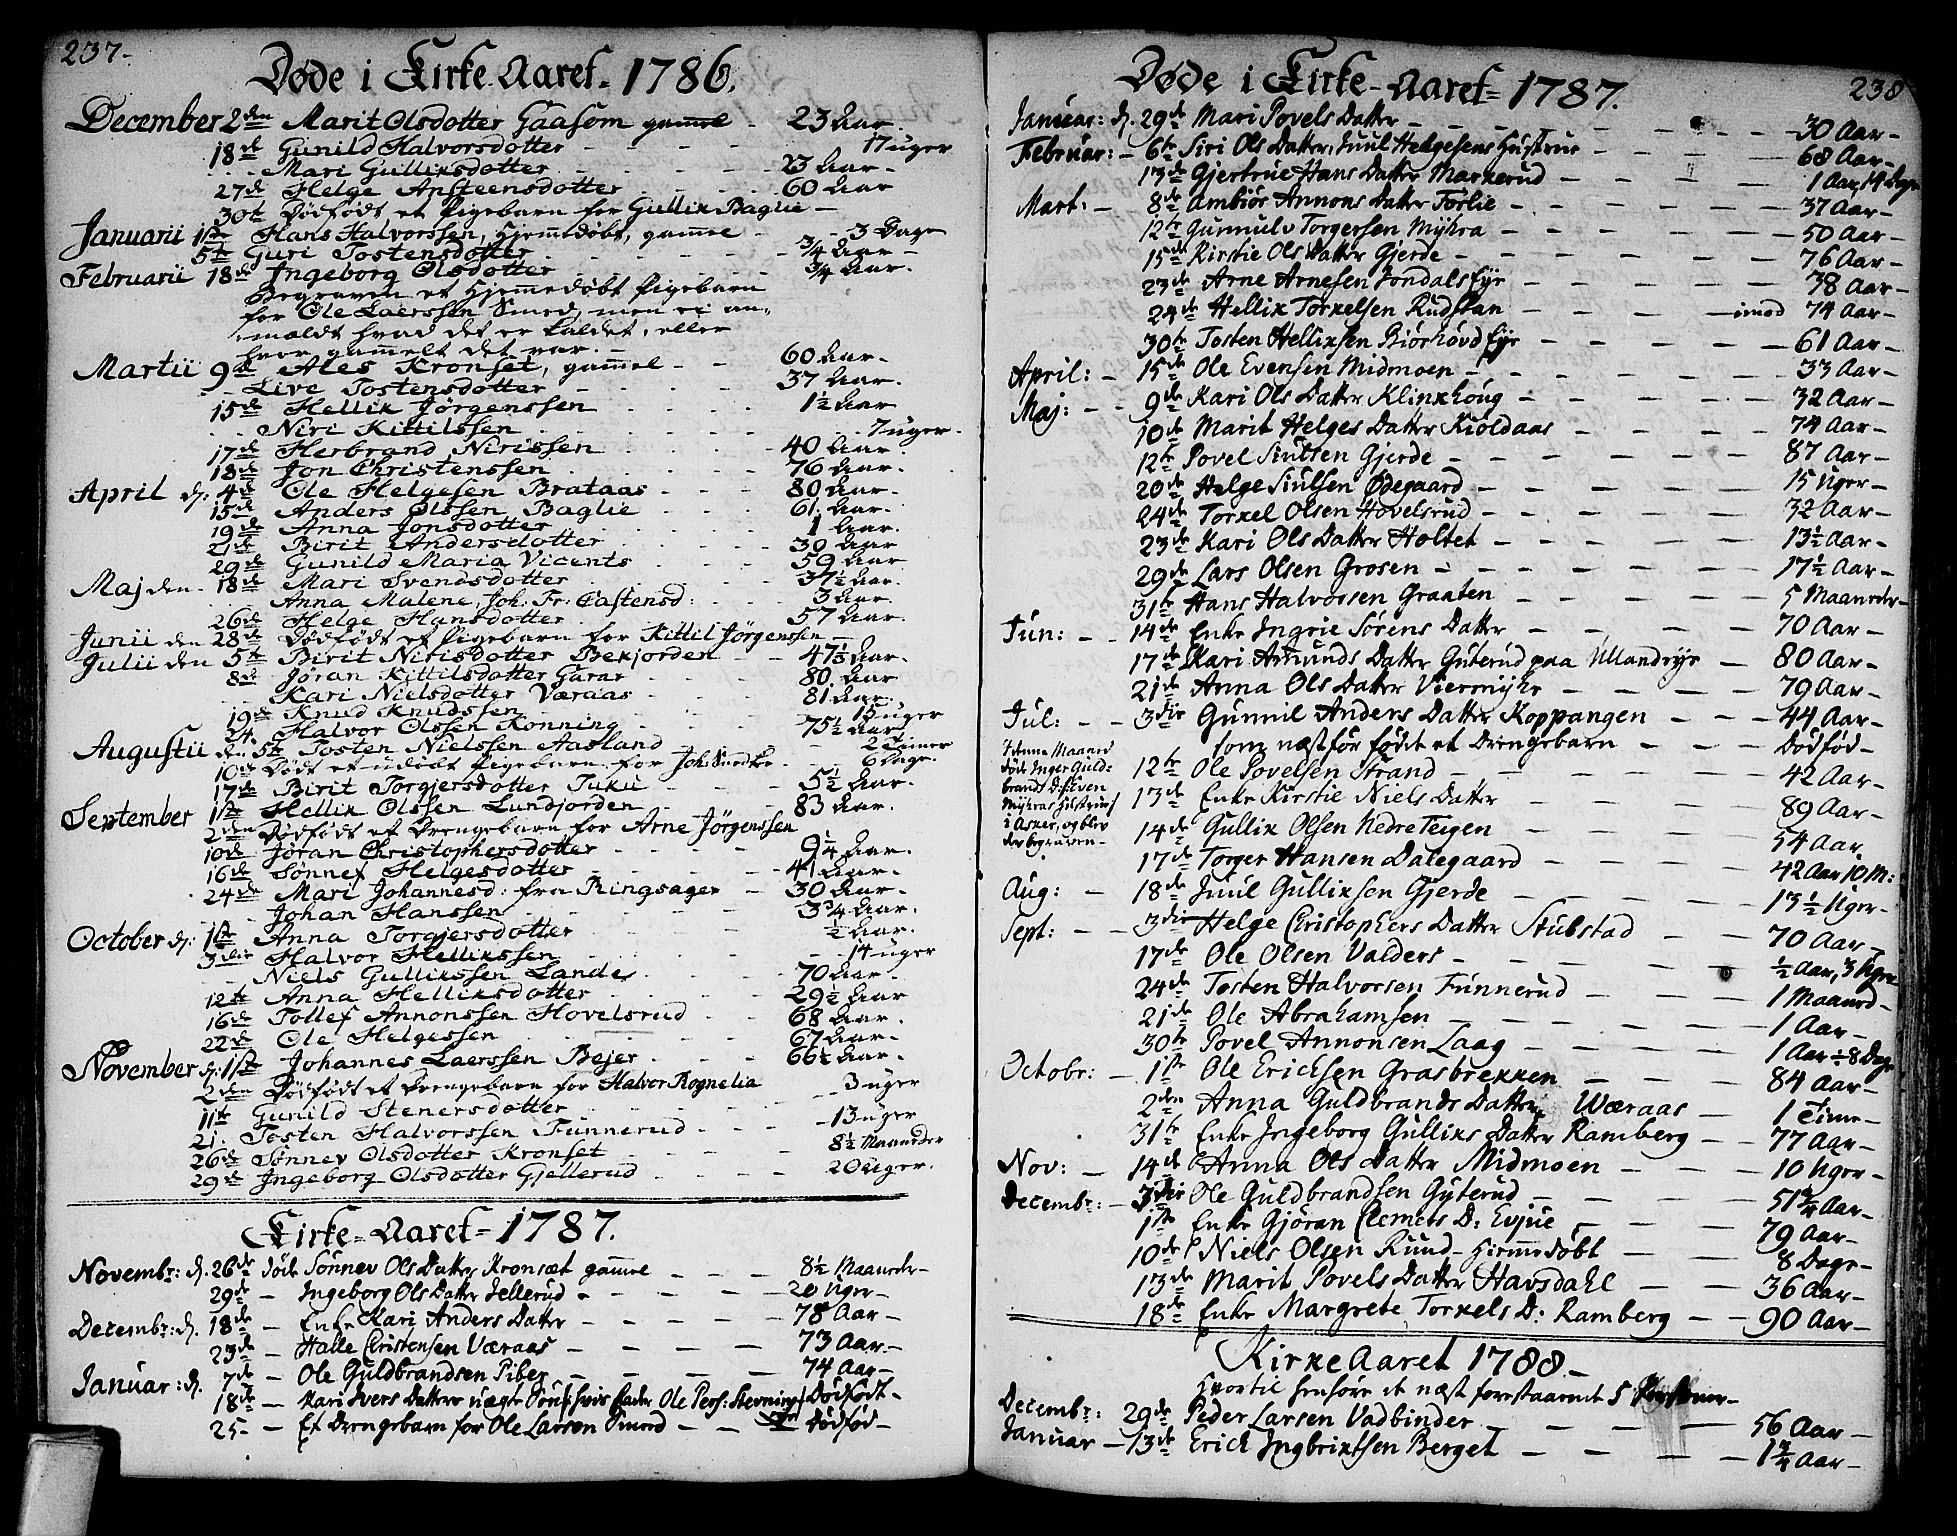 237-
Døde i Kirke-Aaret-1786.
December 2den Marit Olsdotter Gaasem gamel - 23 Aar.
18de Gunild Halvorsdotter - - 17 uger
Mari Gulliksdotter - - 23 Aar.
27de Helge Ansteensdotter - - 60 Aar
30te Dødfødt et Pigebarn for Gullik Baglie -
Januarii 1ste Hans Halvorssen, hjemedøbt, gamel - - 3 Dage
5te Guri Tostensdotter - - 3/4 Aar.
Februarii 18de Ingeborg Olsdotter - - 3/4 Aar.
Begraven et hjemedøbt Pigebarn
for Ole Laerssen Smed, men ei an-
maldt hvad det er kaldet, eller
hvor gammelt det var.
Martii 9de Ales Kronset, gamel - - 60 Aar.
Live Tostensdotter - - 37 Aar.
15de Hellik Jörgenssen - - 1½ Aar
Niri Kittilssen - - 7 uger.
17de Herbrand Nirissen - - 40 Aar.
18de Jon Christenssen - - 76 Aar.
April d: 4de Ole Helgesen Brataas - - 80 Aar.
15de Anders Olssen Baglie - - 61 Aar.
19de Anna Jonsdotter - - 1 Aar.
21de Birit Andersdotter - - 30 Aar
29de Gunild Maria Vicents - - 59 Aar
Maj den 18de Mari Svendsdotter - - 37½ Aar.
Anna Malene Joh: Fr: Castensd: - 3 Aar.
26de Helge Hansdotter - - 57 Aar.
Junii den 28de Dødfødt et Pigebarn for Kittil Jörgenssen -
Julii den 5te Birit Nirisdotter Bekjorden - - 47½ Aar.
8de Jøran Kittilsdotter Garar - - 80 Aar
Kari Nielsdotter Væraas - - 81 Aar.
19de Knud Knudssen - - 15 uger
24. Halvor Olssen Konning - - 75½ Aar
Augustii den 5te Tosten Nielssen Aasland - - 2 Timer
10de Dødt et udøbt Pigebarn for Joh: - 6 Dage.
17de Birit Torgjersdotter Tuku - - 5½ Aar.
September 1ste Hellik Olssen Lundjorden - - 83 Aar.
2den Dødfødt et Drengebarn for Arne Jörgenssen
10de Jøran Christophersdotter - - 9¼ Aar.
16de Sønnef Helgesdotter - - 41 Aar.
24de Mari Johannesd: fra Ringsager - 30 Aar.
Johan Hanssen - - 3¾ Aar.
October d: 1ste Anna Torgjersdotter - - ½ Aar.
3die Halvor Hellikssen - - 14 uger
Niels Gullikssen Lande - - 70 Aar.
12te Anna Helliksdotter - - 29½ Aar
16de Tollef Annonssen Hovelsrud - - 68 Aar.
22de Ole Helgessen - - 67 Aar.
November d: 1ste Johannes Laerssen Bejer - - 66½ Aar.
2den Dødfødt et Drengebarn for Halvor Rognelia
11te Gunild Stenersdotter - - 3 uger
21. Tosten Halvorssen Funnerud - - 13 uger
26de Sønnev Olsdotter Kronset - - 8½ Maaneder
29de Ingeborg Olsdotter Gjellerud - - 20 Uger.
Kirke-Aaret-1787.
Novembr: d. 26de døde Sønnev Ols Datter Kronsæt gamel - - 8½ Maaneder-
29de - Ingeborg Ols Datter Jellerud - - 20 Uger-
Decembr: d. 18de - Enke Kari Anders Datter - - 78 Aar-
23de - Halle Christensen Væraas - - 73 Aar-
Januar: d. 7de - Ole Guldbrandsen Piber - - 74 Aar-
18de - Kari Ivers Datters uægte Søn, hvis Fader Ole Pers: Stevning - Dødfødt-
25- - Et Drengebarn for Ole Larsen Smed - - dødfød-
238
Døde i Kirke-Aaret-1787.
Januar: d. 29de Mari Povels Datter - - 30 Aar-
Februar: - 6te Siri Ols Datter, Juul Helgesens Hustrue - - 68 Aar-
13de Gjertrue Hans Datter Markerud - - 1 Aar, 14 Dage
Mart: - 8de Ambiør Annons Datter Forlie - - 37 Aar-
12te Gunmulv Torgersen Mykra - - 50 Aar-
15de Kirstie Ols Datter Gjerde - - 76 Aar-
23de Arne Arnesen Jondals Eje - - 78 Aar-
24de Hellik Torkelsen Rudstan - - imod 74 Aar-
30te Tosten Helliksen Biörhövd Eje - - 61 Aar-
April: - 15de Ole Evensen Midmoen - - 33 Aar-
Maj: - - 9de Kari Ols Datter Klinkhoug - - 32 Aar-
10de Marit Helges Datter Kioldaas - - 74 Aar-
12te Povel Siulsen Gjerde - - 87 Aar-
20de Helge Siulsen Ødegaard - - 15 Uger-
24de Torkel Olsen Hovelsrud - - 32 Aar-
23de Kari Ols Datter Holtet - - 13½ Aar-
29de Lars Olsen Grosen - - 17½ Aar-
31te Hans Halvorsen Graaten - - 5 Maaneder-
Jun: - - 14de Enke Ingrie Sørens Datter - - 70 Aar-
17de Kari Amunds Datter Guterud paa Ullandeje - 80 Aar-
21de Anna Ols Datter Viermyhr - - 79 Aar-
Jul: - - 3die Gunnil Anders Datter Koppangen - - 44 Aar-
som næstför födte et Drengebarn - - Dödfød-
I denne Maaned
døde Inger Guld-
brands D: Steven
Mykras Hustrue
i Asker, og blev
der begraven-
12te Ole Povelsen Strand - - 42 Aar-
13de Enke Kirstie Niels Datter - - 89 Aar-
14de Gullik Olsen Nedre Teigen - - 54 Aar
17de Torger Hansen Dalegaard - - 42 Aar 10 M:
Aug: - 18de Juul Gulliksen Gjerde - - 13½ Uger-
Sept: - - 3die Helge Christophers Datter Stubstad - - 70 Aar-
17de Ole Olsen Valders - - ½ Aar, 3 Uger
24de Tosten Halvorsen Funnerud - - 1 Maaned-
21de Ole Abrahamsen - - 1 Aar-
30te Povel Annonsen Laag - - 1 Aar ÷ 8 Dage
Octobr: - 1ste Ole Ericksen Grasbrekken - - 84 Aar-
2den Anna Guldbrands Datter Wæraas - - 1 Time-
31te Enke Ingeborg Gulliks Datter Ramberg - - 77 Aar-
Nov: - 14de Anna Ols Datter Midmoen - - 10 Uger-
Decembr: - 3die Ole Guldbrandsen Gyterud - - 51¾ Aar-
1ste Enke Gjøran Clemets D: Evjue - - 79 Aar-
10de Niels Olsen Ruud - Hiemmedöbt - - 8 Dage-
13de Marit Povels Datter Havsdahl - - 36 Aar-
18de Enke Margrete Torkels D: Ramberg - - 90 Aar-
Kirke Aaret 1788-
Hvortil henføre de næst forestaaende 5 Personer-
Decembr: 29de Peder Larsen Vadbinder - - 56 Aar-
Januar - 13de Erick Ingbriktsen Berget - - 1¾ Aar-